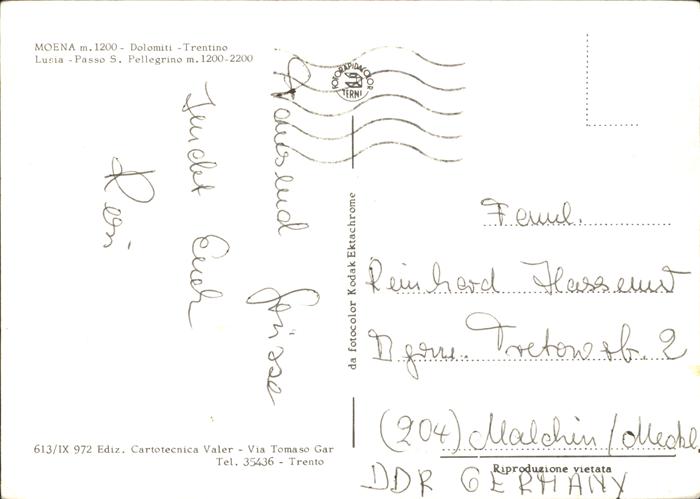 MOENA m. 1200 - Dolomiti - Trentino
Lusia - Passo S. Pellegrino m. 1200-2200
FOTORAPIDACOLOR
TERNI
Tausend Grüsse
sendet Euch
Resi
da fotocolor Kodak Ektachrome
Faml.
Reinhard Hassemst
Tretow 2
(204) Malchin / Meckl.
DDR GERMANY
613/IX 972 Ediz. Cartotecnica Valer - Via Tomaso Gar
Tel. 35436 - Trento
Riproduzione vietata